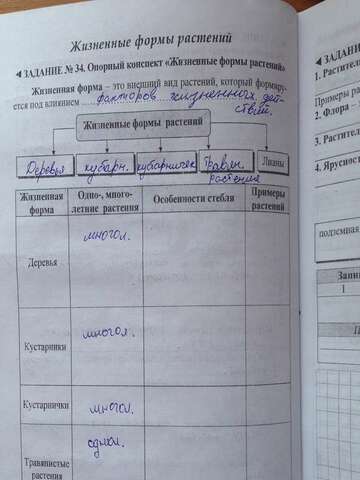 Жизненные формы растений
◄ ЗАДАНИЕ № 34. Опорный конспект «Жизненные формы растений»
Жизненная форма – это внешний вид растений, который формиру-
ется под влиянием факторов жизненного дей-
ствий.
Жизненные формы растений
Деревья
кубарн.
кубарничек
Травян.
растения
Лианы
Жизненная
форма
Одно-, много-
летние растения
Особенности стебля
Примеры
растений
Деревья
многол.
Кустарники
многол.
Кустарнички
многол.
Травянистые
растения
однол.
◄ ЗАДАНИ
1. Растител
Примеры ра
2. Флора –
3. Растител
4. Ярусност
подземная
Запи
1